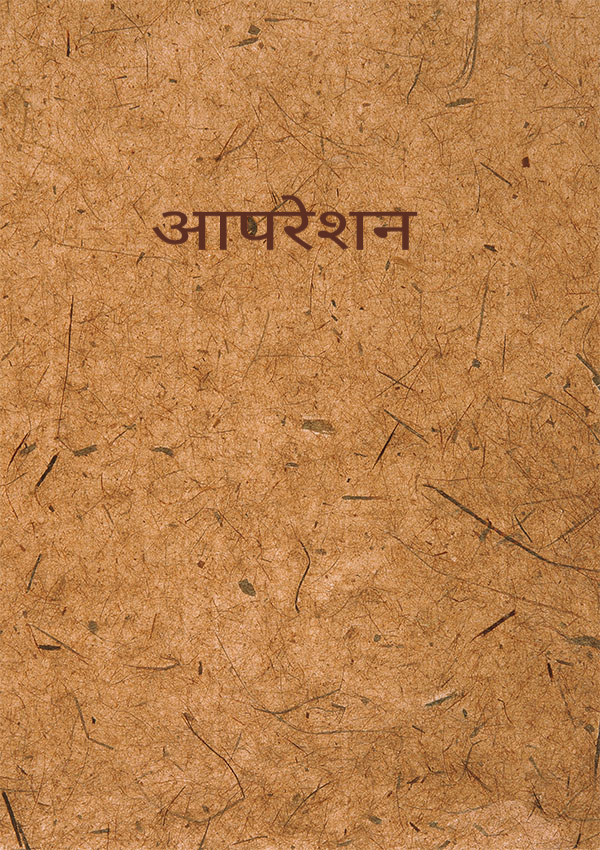 आपरेशन